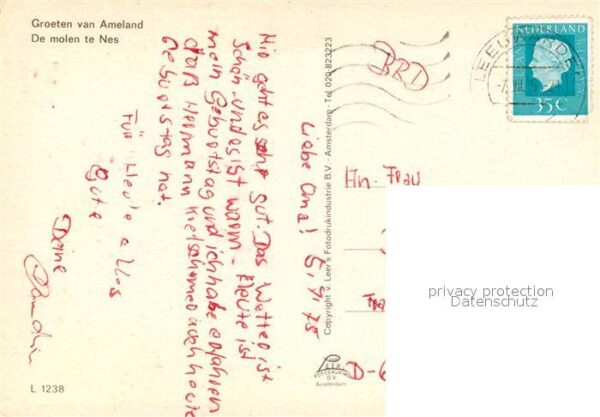 Groeten van Ameland
De molen te Nes
Liebe Oma! 6. 7. 75
Mir geht es sehr gut. Das Wetter ist
schön und es ist warm. Heute ist
mein Geburtstag und ich habe erfahren
daß Hermann Kretschmer auch heute
Geburtstag hat.
Für Heute alles
Gute
Deine
Copyright v. Leer's Fotodrukindustrie B.V. - Amsterdam - Tel. 020-823223
LEER'S
FOTODRUKIND.
B.V.
Amsterdam
BRD
LEEUWARDEN
NEDERLAND
35C
An Frau
D-6
privacy protection
Datenschutz
L 1238